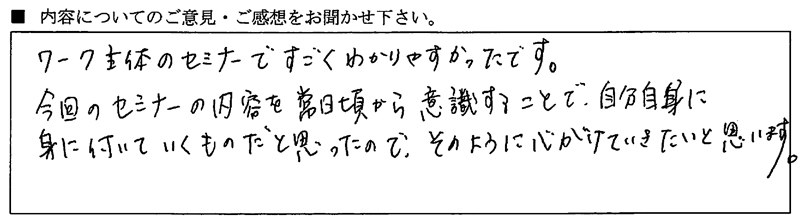 ■ 内容についてのご意見・ご感想をお聞かせ下さい。
ワーク主体のセミナーですごくわかりやすかったです。
今回のセミナーの内容を常日頃から意識することで、自分自身に
身に付いていくものだと思ったので、そのように心がけていきたいと思います。